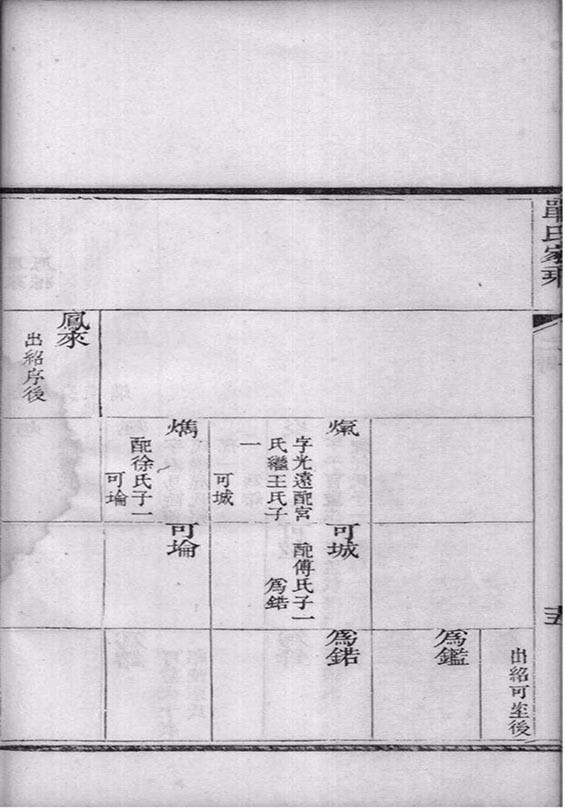 單氏家乘
五
鳳來
出紹序後
字光遠配宮
氏繼王氏子
一
可城
燇
配徐氏子一
可埨
可城
配傅氏子一
爲錯
可埨
出紹可後
爲鑑
爲錯